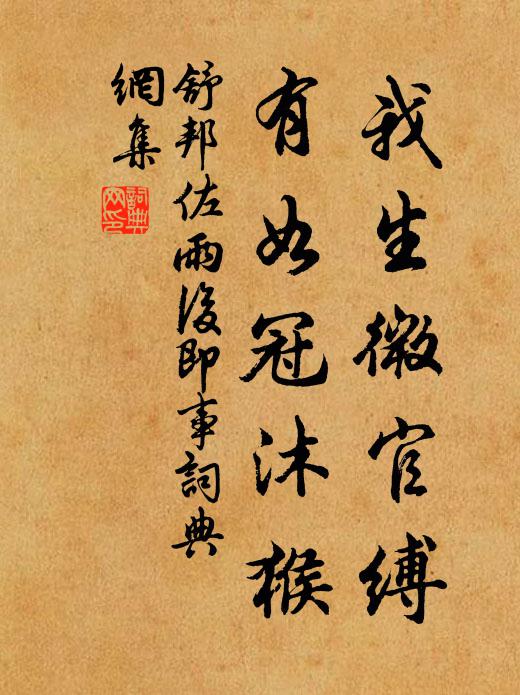 我生微官缚
有如冠沐猴
舒邦佐雨後即事詞典
網集
詞典網印